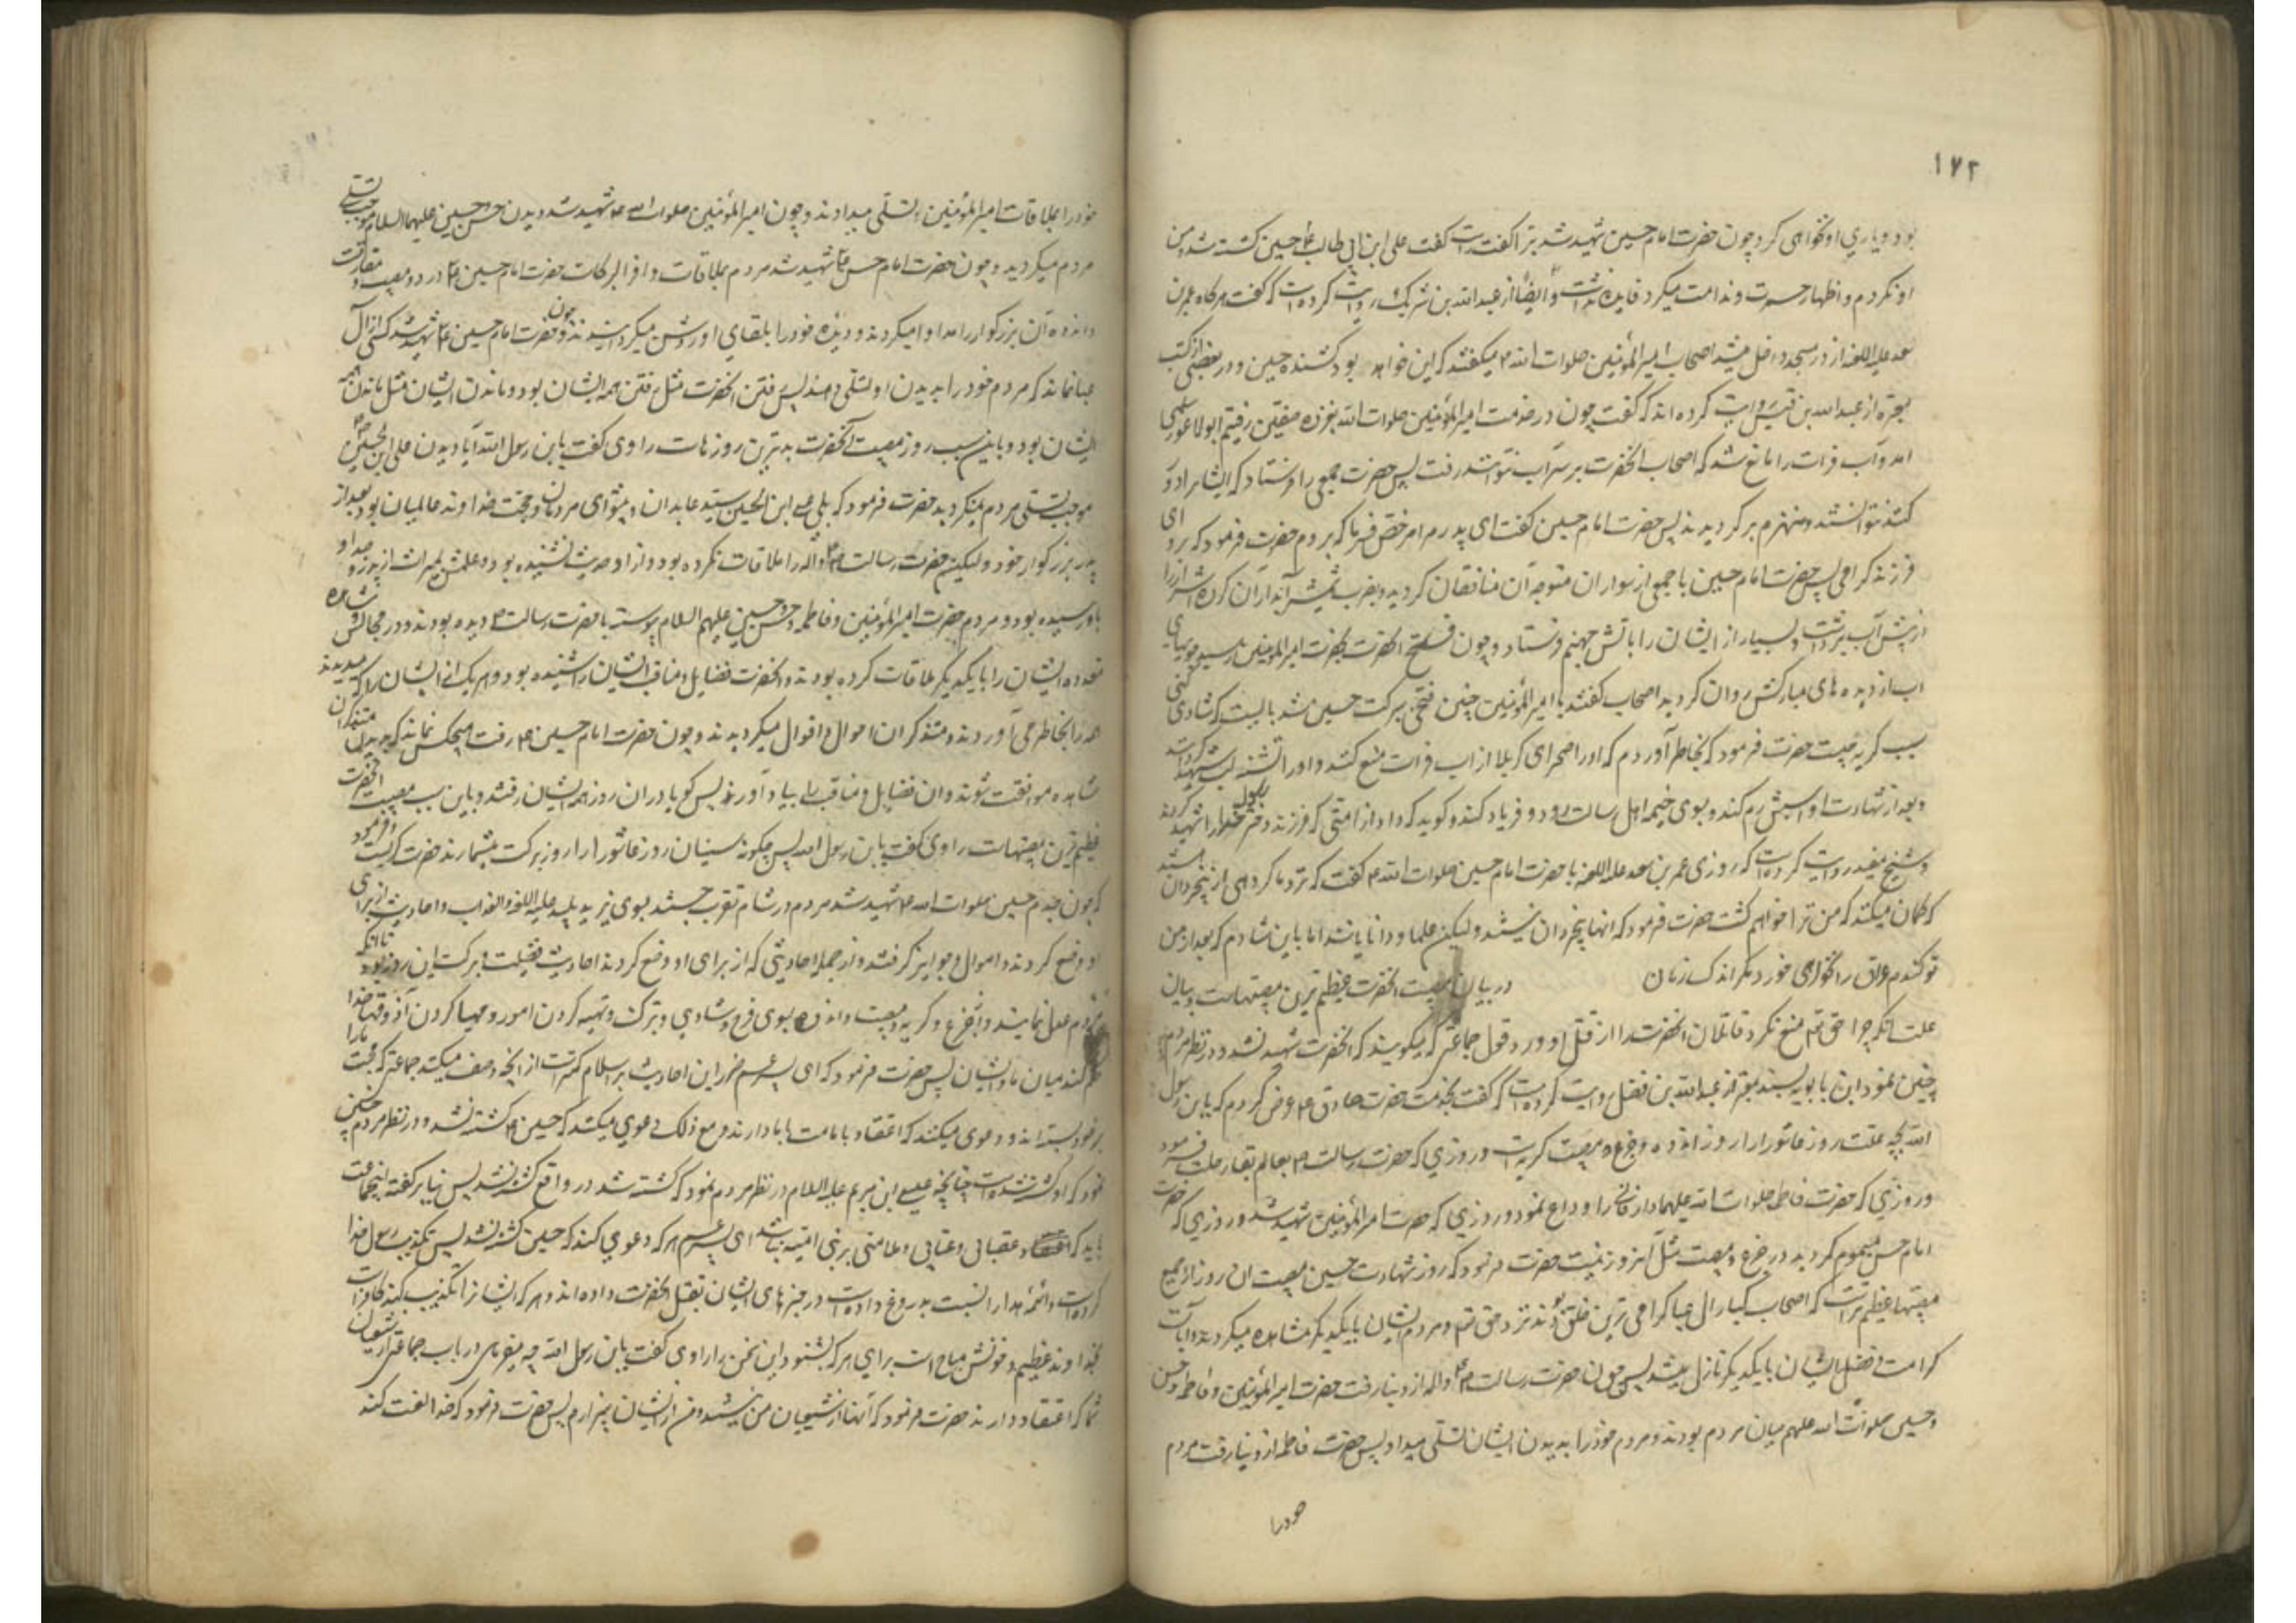 ۱۷۲
بود و یاری او نخواهی کرد چون حضرت امام حسین شهید شد برا گفت راست گفت علی ابن ابی طالب ع حسین کشته شد و من
او نکردم و اظهار حسرت و ندامت میکرد فایده نداشت و ایضا از عبدالله بن شریک روایت کرده است که گفت هرگاه عمر بن
سعد علیه اللعنه از در مسجد داخل میشد اصحاب امیرالمؤمنین صلوات الله میگفتند که این خواهد بود کشنده حسین و در بعضی از کتب
معتبره از عبدالله بن قیس روایت کرده اند که گفت چون در خدمت امیرالمؤمنین صلوات الله بغزوه صفین رفتیم ابو الاعور سلمی
امد و آب فرات را مانع شد که اصحاب انحضرت بر سر آب نتوانستند رفت پس حضرت جمعی را فرستاد که ایشانرا دور
کنند نتوانستند و منهزم برگردیدند پس حضرت امام حسین گفت ای پدر مرا مرخص فرما که بردم حضرت فرمود که برو ای
فرزند گرامی پس حضرت امام حسین با جمعی از سواران متوجه آن منافقان گردید و بضرب شمشیر آبدار آن گروه اشرار را
از پیش آب برداشت و بسیار از ایشان را باتش جهنم فرستاد و چون فتح انحضرت بحضرت امیرالمومنین رسید
اب از دیده های مبارکش روان گردید اصحاب گفتند یا امیرالمؤمنین چنین فتحی ببرکت حسین شد بایست که شادی کنی
سبب گریه چیست حضرت فرمود که بخاطر آوردم که او را صحرای کربلا از اب فرات منع کنند و او را تشنه لب شهید کنند
و بعد از شهادت او اسبش رم کند و بسوی خیمه اهل رسالت رود و فریاد کند و گوید که داد از امتی که فرزند دختر رسول خدا را شهید کردند
و شیخ مفید روایت کرده است که روزی عمر بن سعد علیه اللعنه با حضرت امام حسین صلوات الله گفت که نزد ما گروهی از بیخردان هستند
که گمان میکنند که من ترا خواهم کشت حضرت فرمود که انها بیخردان نیستند ولیکن علما و دانایانند اما باین شادم که بعد از من
تو گندم عراق را نخواهی خورد مگر اندک زمان در بیان مصیبت انحضرت عظیم ترین مصیبتهاست و بیان
علت انکه چرا حق تع منع نکرد قاتلان انحضرت را از قتل او و رد قول جماعتی که میگویند که انحضرت شهید نشد و در نظر مردم
چنین نمود ابن بابویه بسند معتبر از عبدالله بن فضل روایت کرده است که گفت بخدمت حضرت صادق ع عرض کردم که یابن رسول
الله بچه علت روز عاشورا را روز اندوه و جزع و مصیبت گریه است و روزی که حضرت رسالت ص بعالم بقا رحلت فرمود
و روزی که حضرت فاطمه صلوات الله علیها دار فانی را وداع نمود و روزی که حضرت امیرالمؤمنین شهید شد و روزی که حضرت
امام حسن مسموم گردید در جزع و مصیبت مثل آنروز نیست حضرت فرمود که روز شهادت حسین مصیبت ان روز از جمیع
مصیبتها عظیم تر است که اصحاب کبار آل عبا گرامی ترین خلق بودند نزد حق تع و مردم ایشان با یکدیگر مشاهده میکردند و آیات
کرامت و فضل ایشان با یکدیگر نازل میشد پس چون حضرت رسالت ص واله از دنیا رفت حضرت امیرالمؤمنین و فاطمه و حسن
و حسین صلوات الله علیهم میان مردم بودند و مردم خود را بدیدن ایشان تسلی میداد پس حضرت فاطمه از دنیا رفت مردم
خود را
خود را بملاقات امیرالمؤمنین تسلی میدادند و چون امیرالمؤمنین صلوات الله ع شهید شد دیدن حسن و حسین علیهما السلام موجب تسلی
مردم میگردید و چون حضرت امام حسن ع شهید شد مردم بملاقات وافر البرکات حضرت امام حسین ع درد و مصیبت مفارقت
و اندوه آن بزرگوار را مداوا میکردند و دیده خود را بلقای او روشن میگردانیدند و چون حضرت امام حسین ع شهید شد کسی از آل
عبا نماند که مردم خود را بدیدن او تسلی دهند پس رفتن انحضرت مثل رفتن همه ایشان بود و ماندن ایشان مثل ماندن همه
ایشان بود و باین سبب روز مصیبت آنحضرت بدترین روزهاست راوی گفت یابن رسول الله آیا دیدن علی ابن الحسین ع
موجب تسلی مردم نمیگردید حضرت فرمود که بلی علی ابن الحسین سید عابدان و پیشوای مردمان و حجت خداوند عالمیان بود بعد از
پدر بزرگوار خود و لیکن حضرت رسالت ص واله را ملاقات نکرده بود و از او حدیث نشنیده بود و علمش بمیراث از پدر و جد او
باو رسیده بود و مردم حضرت امیرالمؤمنین و فاطمه و حسن و حسین علیهم السلام پیوسته با حضرت رسالت ص دیده بودند و در مجالس مشاهده
نموده ایشان را با یکدیگر ملاقات کرده بودند و انحضرت فضایل و مناقب ایشان را شنیده بود و هر یک از ایشان را که میدیدند
همه را بخاطر می آوردند و متذکر ان احوال و اقوال میگردیدند و چون حضرت امام حسین ع رفت هیچکس نماند که
مشاهده موافقت شوند و ان فضایل و مناقب را بیاد آورند پس گویا در ان روز همه ایشان رفتند و باین سبب مصیبت انحضرت
عظیم ترین مصیبتهاست راوی گفت یابن رسول الله پس چگونه سنیان روز عاشورا را روز برکت میشمارند حضرت گریست و فرمود
که چون جدم حسین صلوات الله ع شهید شد مردم در شام تقرب جستند بسوی یزید پلید علیه اللعنه و العذاب و احادیث از برای
او وضع کردند و اموال و جوایز گرفتند و از جمله احادیثی که از برای او وضع کردند احادیث فضیلت و برکت این روز بود تا انکه
مردم عمل نمایند و از جزع و گریه و مصیبت و اندوه بسوی فرح و شادی و تبرک و تهیه کردن امور و مهیا کردن آذوقها خدا
حکم کند میان ما و ایشان پس حضرت فرمود که ای پسر عم ضرر این احادیث بر اسلام کمتر است از انچه وصف میکنند جماعتی که محبت ما را
بر خود بسته اند و دعوی میکنند که اعتقاد بامامت ما دارند و مع ذلک دعوی میکنند که حسین ع کشته نشد و در نظر مردم چنین
نمود که او کشته شده است چنانچه عیسی ابن مریم علیه السلام در نظر مردم نمود که کشته شد در واقع کشته نشد پس بنابر گفته اینجماعت
باید که عقابی و عتابی و ملامتی بر بنی امیه نباشد ای پسر عم هر که دعوی کند که حسین کشته نشد پس تکذیب رسول خدا
کرده است و ائمه هدا را نسبت بدروغ داده است در خبرهای ایشان بقتل انحضرت داده اند و هر که ایشانرا تکذیب کند کافر است
بخداوند عظیم و خونش مباح است برای هر که بشنود این سخن را راوی گفت یابن رسول الله چه میفرمائی در باب جماعتی از شیعیان
شما که اعتقاد دارند حضرت فرمود که آنها از شیعیان من نیستند و من از ایشان بیزارم پس حضرت فرمود که خدا لعنت کند